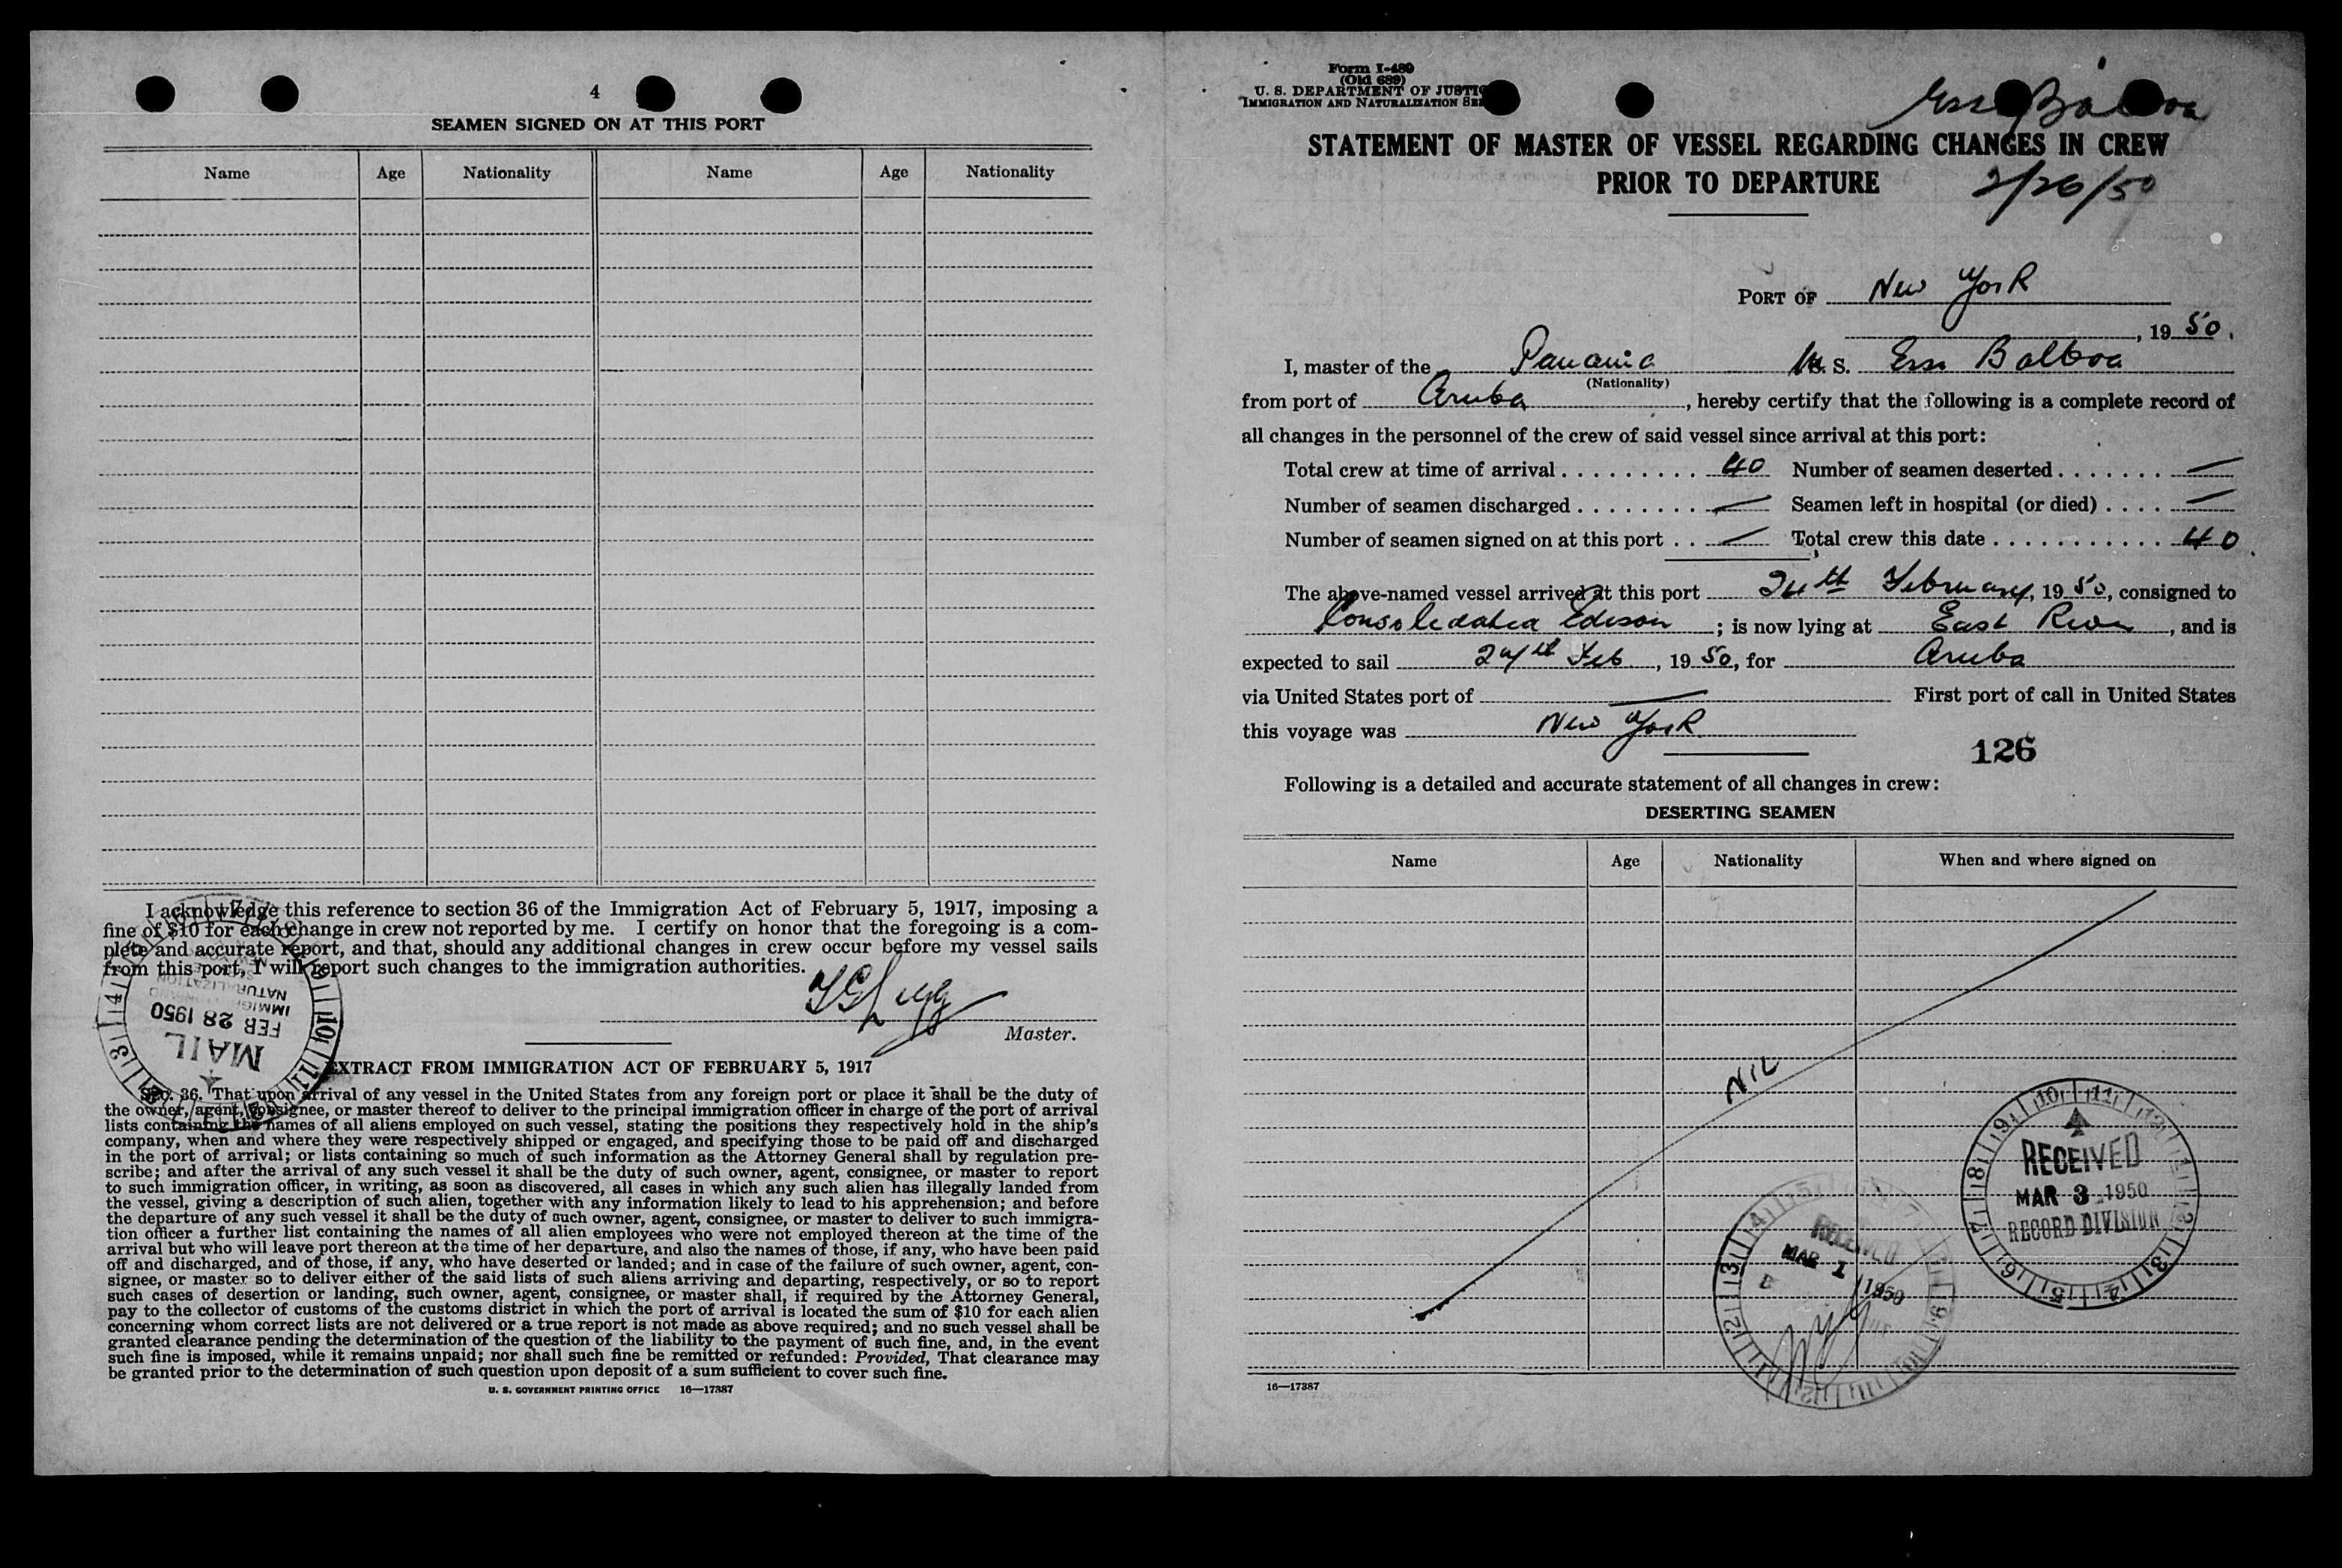 4
SEAMEN SIGNED ON AT THIS PORT
Name Age Nationality Name Age Nationality
I acknowledge this reference to section 36 of the Immigration Act of February 5, 1917, imposing a
fine of $10 for each change in crew not reported by me. I certify on honor that the foregoing is a com-
plete and accurate report, and that, should any additional changes in crew occur before my vessel sails
from this port, I will report such changes to the immigration authorities.
Master.
NATURALIZATION
IMMIG
FEB 28 1950
MAIL
EXTRACT FROM IMMIGRATION ACT OF FEBRUARY 5, 1917
SEC. 36. That upon arrival of any vessel in the United States from any foreign port or place it shall be the duty of
the owner, agent, consignee, or master thereof to deliver to the principal immigration officer in charge of the port of arrival
lists containing the names of all aliens employed on such vessel, stating the positions they respectively hold in the ship's
company, when and where they were respectively shipped or engaged, and specifying those to be paid off and discharged
in the port of arrival; or lists containing so much of such information as the Attorney General shall by regulation pre-
scribe; and after the arrival of any such vessel it shall be the duty of such owner, agent, consignee, or master to report
to such immigration officer, in writing, as soon as discovered, all cases in which any such alien has illegally landed from
the vessel, giving a description of such alien, together with any information likely to lead to his apprehension; and before
the departure of any such vessel it shall be the duty of such owner, agent, consignee, or master to deliver to such immigra-
tion officer a further list containing the names of all alien employees who were not employed thereon at the time of the
arrival but who will leave port thereon at the time of her departure, and also the names of those, if any, who have been paid
off and discharged, and of those, if any, who have deserted or landed; and in case of the failure of such owner, agent, con-
signee, or master so to deliver either of the said lists of such aliens arriving and departing, respectively, or so to report
such cases of desertion or landing, such owner, agent, consignee, or master shall, if required by the Attorney General,
pay to the collector of customs of the customs district in which the port of arrival is located the sum of $10 for each alien
concerning whom correct lists are not delivered or a true report is not made as above required; and no such vessel shall be
granted clearance pending the determination of the question of the liability to the payment of such fine, and, in the event
such fine is imposed, while it remains unpaid; nor shall such fine be remitted or refunded: Provided, That clearance may
be granted prior to the determination of such question upon deposit of a sum sufficient to cover such fine.
U. S. GOVERNMENT PRINTING OFFICE 16—17387
Form I-489
(Old 689)
U. S. DEPARTMENT OF JUSTIC
IMMIGRATION AND NATURALIZATION SE
Esso Balboa
STATEMENT OF MASTER OF VESSEL REGARDING CHANGES IN CREW
PRIOR TO DEPARTURE
2/26/50
PORT OF New York
, 19 50.
I, master of the Panama M. S. Esso Balboa
(Nationality)
from port of Aruba, hereby certify that the following is a complete record of
all changes in the personnel of the crew of said vessel since arrival at this port:
Total crew at time of arrival . . . . . . . . . 40 Number of seamen deserted . . . . . . . —
Number of seamen discharged . . . . . . . . — Seamen left in hospital (or died) . . . . —
Number of seamen signed on at this port . . — Total crew this date . . . . . . . . . . . 40
The above-named vessel arrived at this port 24th February, 1950, consigned to
Consolidated Edison; is now lying at East River, and is
expected to sail Feb, 1950, for Aruba
via United States port of — First port of call in United States
this voyage was New York
126
Following is a detailed and accurate statement of all changes in crew:
DESERTING SEAMEN
Name Age Nationality When and where signed on
NIL
RECEIVED
MAR 3 1950
RECORD DIVISION
RECEIVED
MAR 1 1950
16—17387